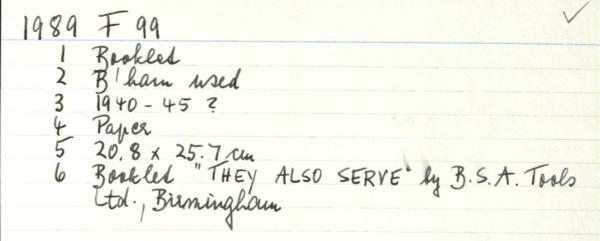 1989 F 99
1 Booklet
2 B'ham used
3 1940-45 ?
4 Paper
5 20.8 x 25.7 cm
6 Booklet "THEY ALSO SERVE" by B.S.A. Tools
Ltd., Birmingham